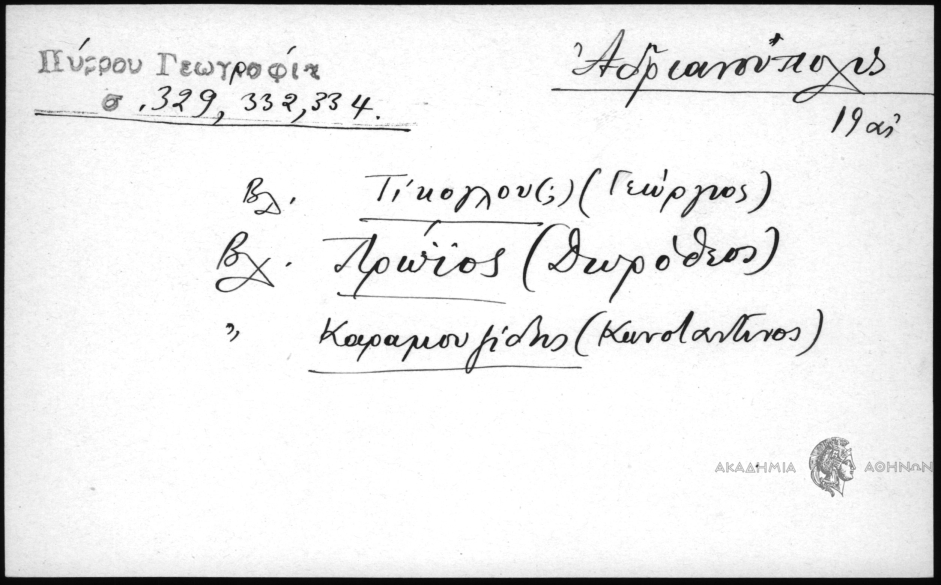 Πύρρου Γεωγραφία
σ. 329, 332, 334.
Ἀδριανούπολις
19 αἰ
Βλ. Τίκογλου(;) (Γεώργιος)
Βλ. Πρώϊος (Δωρόθεος)
" Καραμουζίδης (Κωνσταντῖνος)
ΑΚΑΔΗΜΙΑ ΑΘΗΝΩΝ